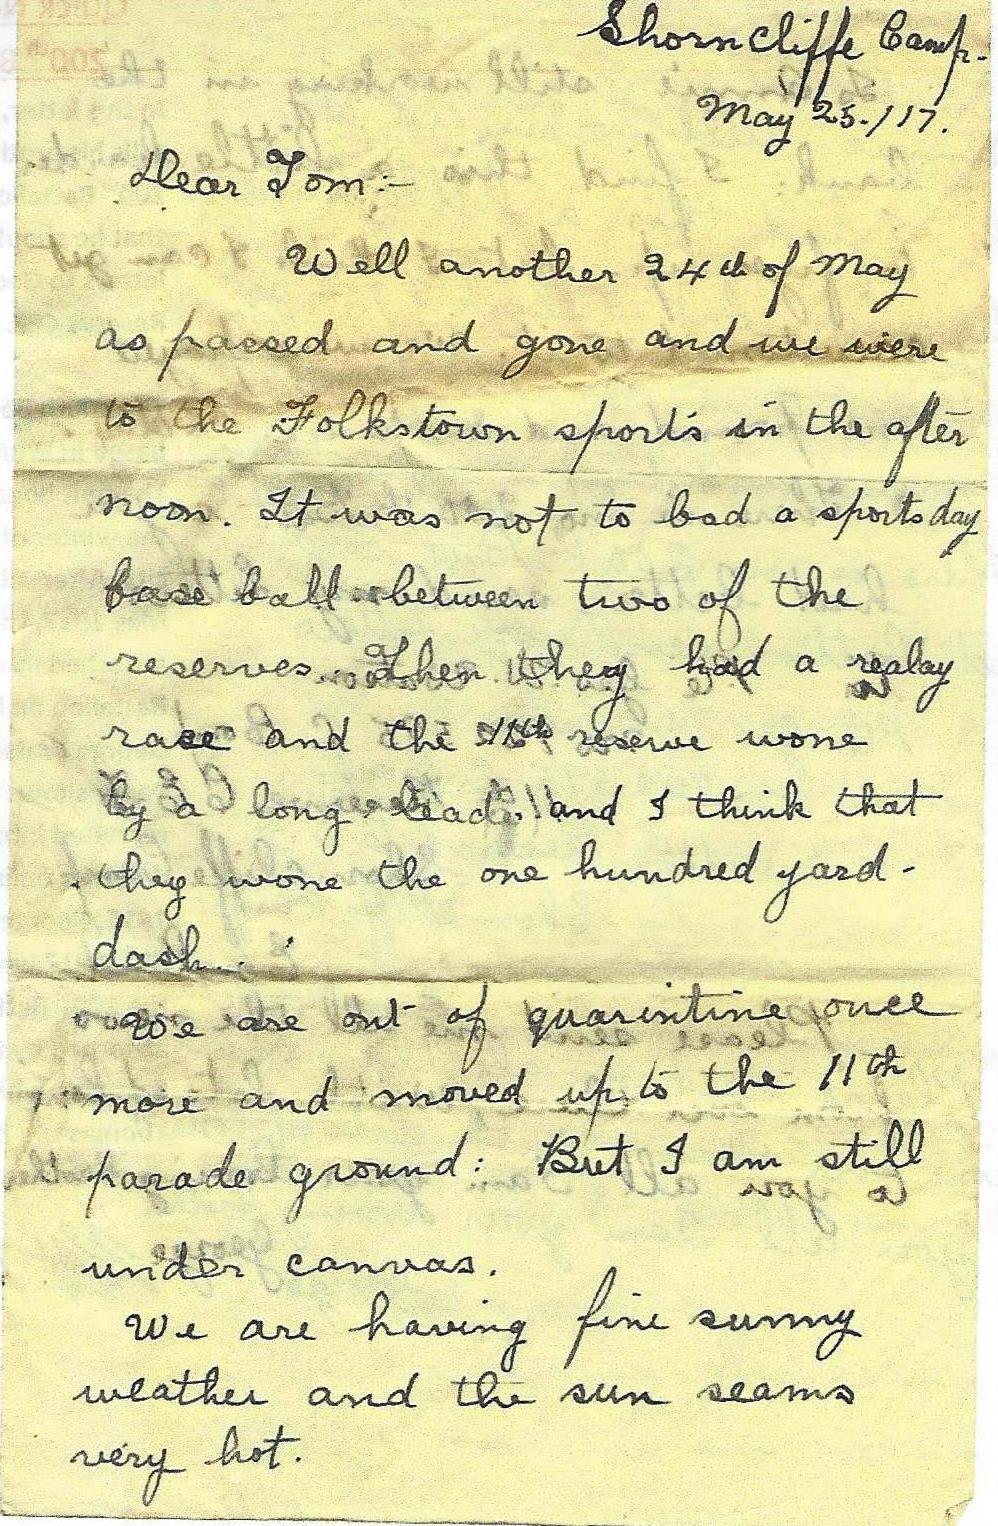 Shorncliffe Camp.
May 25./17.
Dear Tom:-
Well another 24th of May
as passed and gone and we were
to the Folkstown sports in the after
noon. It was not to bad a sports day
base ball between two of the
reserves. Then they had a realay
race and the 11th reserve wone
by a long lead. and I think that
they wone the one hundred yard-
dash.
We are out of quarintine once
more and moved up to the 11th
parade ground: But I am still
under canvas.
We are having fine sunny
weather and the sun seams
very hot.